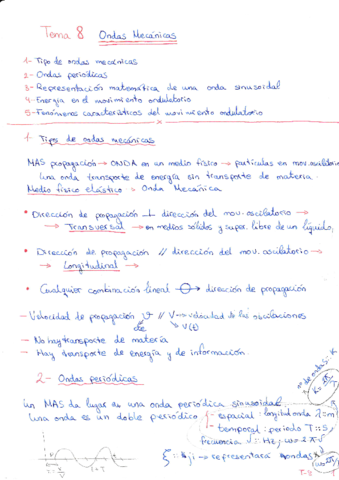 Tema 8 Ondas Mecánicas
1- Tipo de ondas mecánicas
2- Ondas periódicas
3- Representación matemática de una onda sinusoidal
4- Energía en el movimiento ondulatorio
5- Fenómenos característicos del movimiento ondulatorio
1- Tipos de ondas mecánicas
MAS propagación → ONDA en un medio físico → partículas en mov. oscilatorio
Una onda transporte de energía sin transporte de materia.
Medio físico elástico: Onda Mecánica
* Dirección de propagación ⊥ dirección del mov. oscilatorio →
→ Transversal → en medios sólidos y super. libre de un líquido,
* Dirección de propagación // dirección del mov. oscilatorio →
→ Longitudinal →
* Cualquier combinación lineal → dirección de propagación
- Velocidad de propagación v // V → velocidad de las oscilaciones
cte V(t)
- No hay transporte de materia
- Hay transporte de energía y de información.
2- Ondas periódicas
nº de ondas: K
un MAS da lugar as una onda periódica sinusoidal
Una onda es un doble periódico - espacial: longitud onda λ = m
- temporal: periodo T = s,
frecuencia ν = Hz;
representará ondas